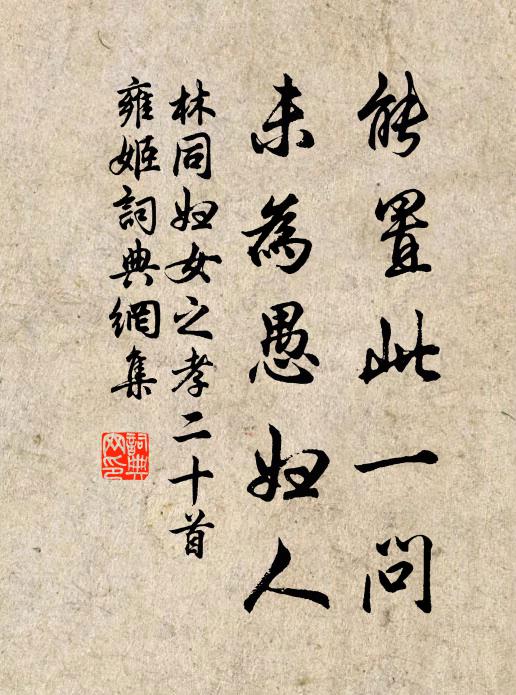 能置此一问
未為愚妇人
林同妇女之孝二十首
雍姬詞典網集
詞典网印